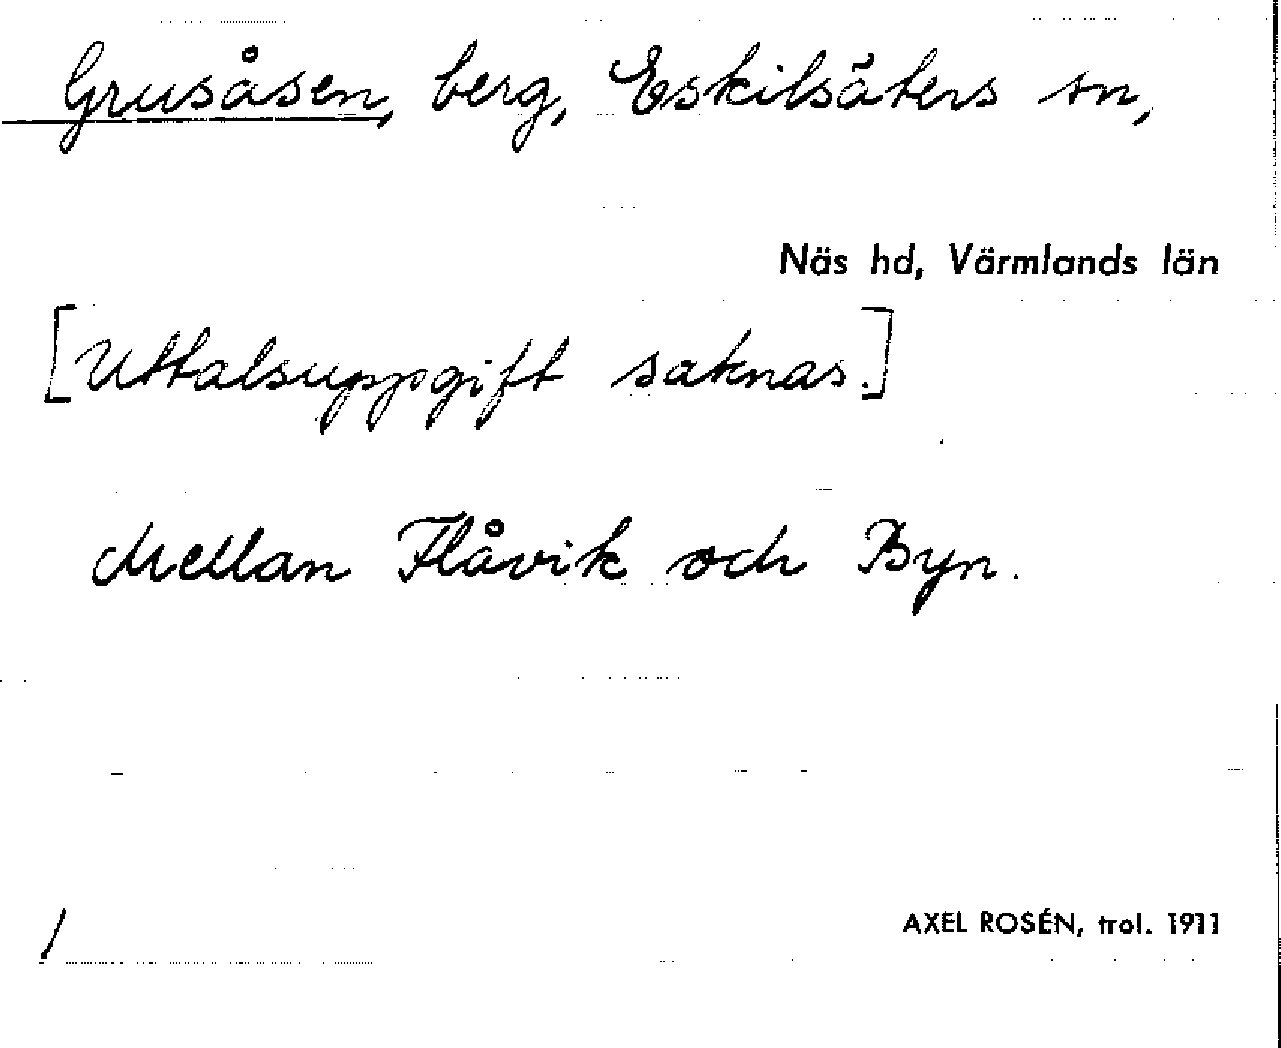 Grusåsen, berg, Eskilsäters sn,
Näs hd, Värmlands län
[Uttalsuppgift saknas.]
Mellan Flåvik och Byn.
/
AXEL ROSÉN, trol. 1911